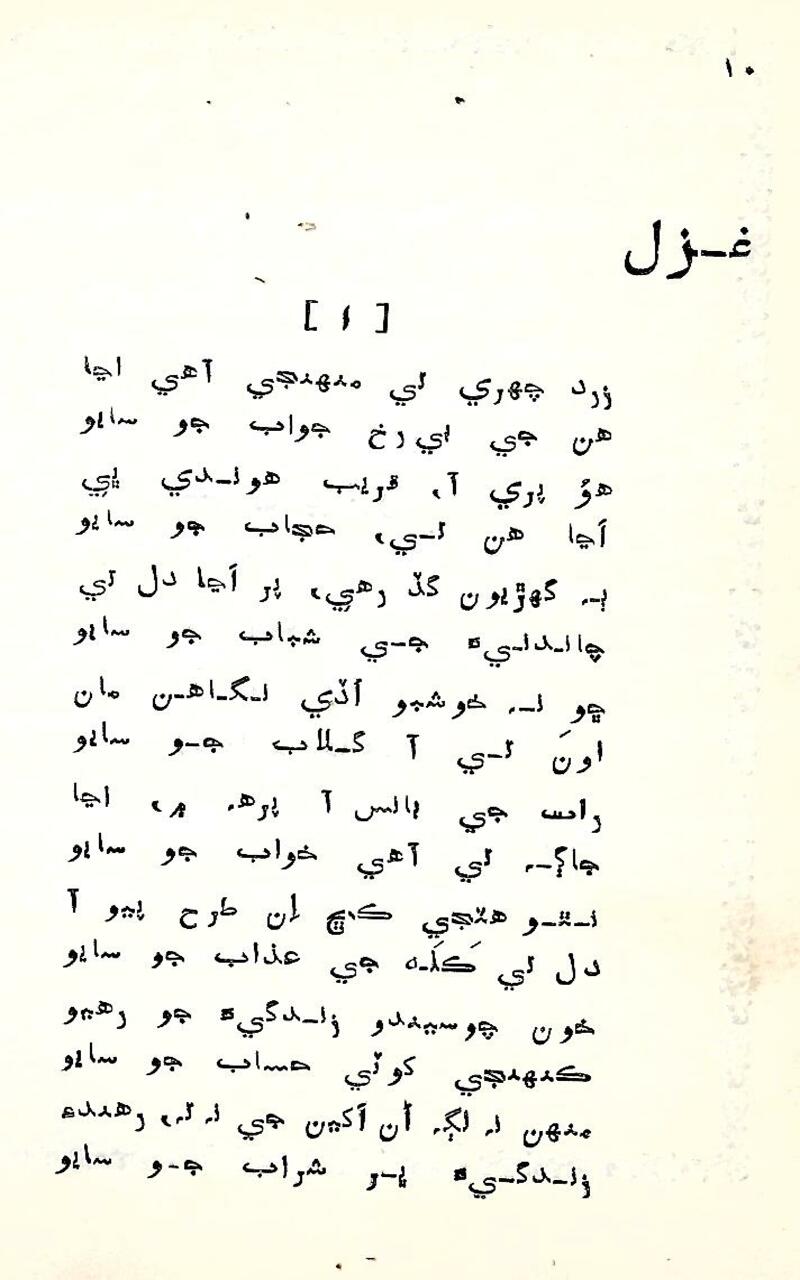 ١٠
غزل
[ ١ ]
زرد چهري تي منهنجي آهي اڃا
هن جي اي رخ جواب جو سايو
هوُ پري آ، قريب هوندي ڀي
اَڃا هن تي، حجاب جو سايو
ٻه گهڙيون گڏ رهي، پر اَڃا دل تي
چاندنيءَ جي شباب جو سايو
ڇو نه خوشبو اُڏي نگاهن مان
اونَ تي آ گلاب جو سايو
رات جي بالس آ پرهه ۾، اڃا
جاڳ تي آهي خواب جو سايو
نٿو هٽجي ڪڇ اِن طرح پيو آ
دل تي ڪَلَهه جي عذاب جو سايو
خون چوسيندو زندگيءَ جو رهيو
ڪنهنجي ڪوٽي حساب جو سايو
منهن نه لڳه اُن اَکين جي نه ته، رهندء
زندگيءَ ڀر شراب جو سايو